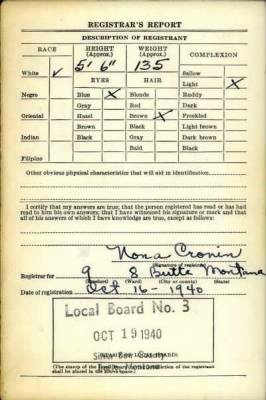 REGISTRAR'S REPORT
DESCRIPTION OF REGISTRANT
RACE HEIGHT (Approx.) WEIGHT (Approx.) COMPLEXION
White ✓ 5' 6" 135 Sallow
EYES HAIR Light X
Negro Blue X Blonde Ruddy
Gray Red Dark
Oriental Hazel Brown X Freckled
Brown Black Light brown
Indian Black Gray Dark brown
Bald Black
Filipino
Other obvious physical characteristics that will aid in identification
I certify that my answers are true; that the person registered has read or has had
read to him his own answers; that I have witnessed his signature or mark and that
all of his answers of which I have knowledge are true, except as follows:
Nona Cronin
(Signature of registrar)
Registrar for 9 8 Butte Montana
(Precinct) (Ward) (City or county) (State)
Date of registration Oct 16 - 1940
Local Board No. 3
OCT 19 1940
Silver Bow County
Butte, Montana
(The stamp of the Local Board
shall be placed in the above space.)